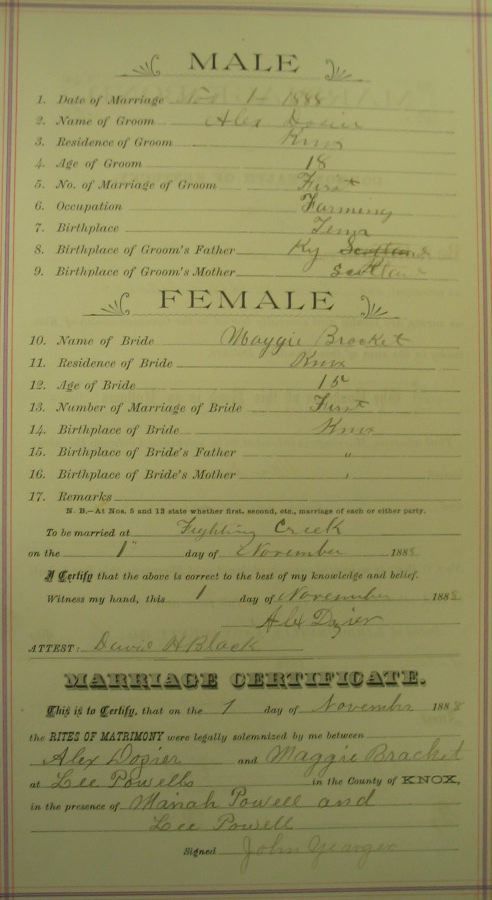 MALE
1. Date of Marriage Nov 1 1888
2. Name of Groom Alex Dozier
3. Residence of Groom Knox
4. Age of Groom 18
5. No. of Marriage of Groom First
6. Occupation Farming
7. Birthplace Tenn
8. Birthplace of Groom's Father Ky Scotland
9. Birthplace of Groom's Mother Scotland
FEMALE
10. Name of Bride Maggie Brocket
11. Residence of Bride Knox
12. Age of Bride 15
13. Number of Marriage of Bride First
14. Birthplace of Bride Knox
15. Birthplace of Bride's Father "
16. Birthplace of Bride's Mother '
17. Remarks
N. B.—At Nos. 5 and 13 state whether first, second, etc., marriage of each or either party.
To be married at Fighting Creek
on the 1" day of November 1888
I Certify that the above is correct to the best of my knowledge and belief.
Witness my hand, this 1 day of November 1888
Alex Dozier
ATTEST: David H Black
MARRIAGE CERTIFICATE.
This is to Certify, that on the 1 day of November 1888
the RITES OF MATRIMONY were legally solemnized by me between
Alex Dozier and Maggie Bracket
at Lee Powells in the County of KNOX,
in the presence of Powell and
Lee Powell
Signed John